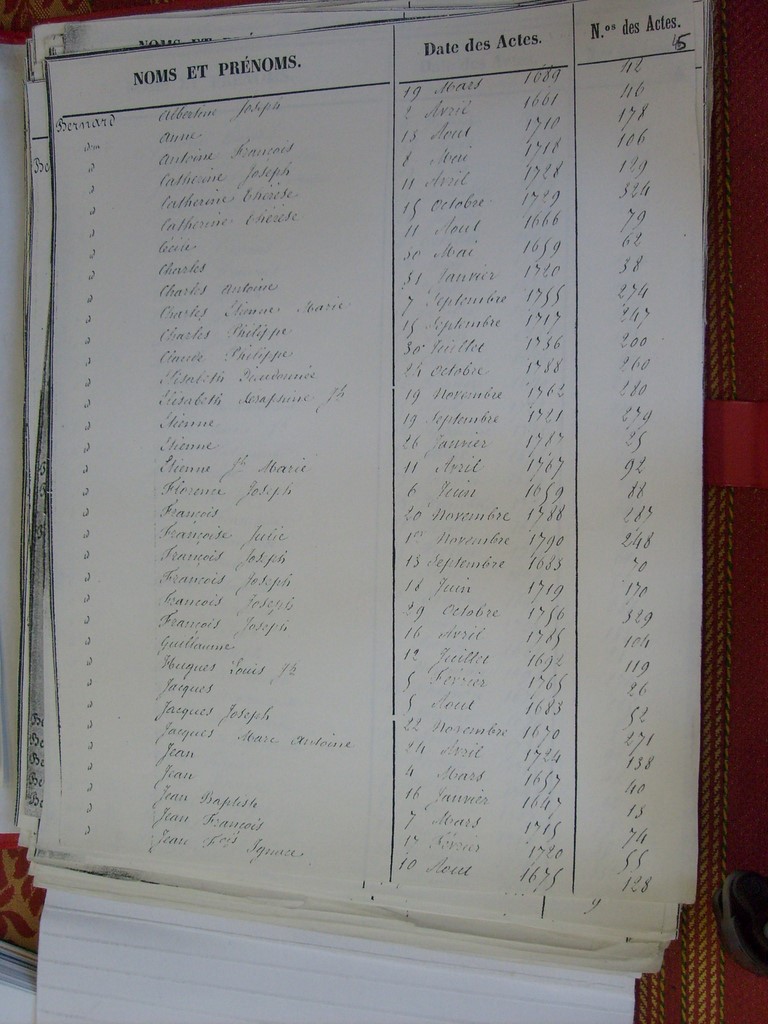 NOMS ET PRÉNOMS. Date des Actes. N.os des Actes.
5
Bernard Albertine Joseph 19 Mars 1689 42
Dm Anne 2 Avril 1661 46
d Antoine François 13 Aout 1710 178
d Catherine Joseph 8 Mai 1718 106
d Catherine Thérèse 11 Avril 1728 129
d Catherine Thérèse 15 Octobre 1729 324
d Cécile 11 Aout 1666 79
d Charles 30 Mai 1659 62
d Charles Antoine 31 Janvier 1720 38
d Charles Etienne Marie 7 Septembre 1755 274
d Charles Philippe 15 Septembre 1717 247
d Claude Philippe 30 Juillet 1736 200
d Elisabeth Dieudonnée 24 Octobre 1788 260
d Elisabeth Seraphine Jh 19 Novembre 1762 280
d Etienne 19 Septembre 1721 279
d Etienne 26 Janvier 1787 25
d Etienne Jh Marie 11 Avril 1767 92
d Florence Joseph 6 Juin 1659 88
d François 20 Novembre 1788 287
d Françoise Julie 1er Novembre 1790 248
d François Joseph 13 Septembre 1683 70
d François Joseph 18 Juin 1719 170
d François Joseph 29 Octobre 1756 329
d François Joseph 16 Avril 1785 104
d Guillaume 12 Juillet 1692 119
d Hugues Louis Jh 5 Février 1765 26
d Jacques 5 Aout 1683 52
d Jacques Joseph 22 Novembre 1670 271
d Jacques Marc Antoine 24 Avril 1724 138
d Jean 4 Mars 1657 40
d Jean 16 Janvier 1647 13
d Jean Baptiste 7 Mars 1715 74
d Jean François 17 Février 1720 55
d Jean Fois Ignace 10 Aout 1675 128